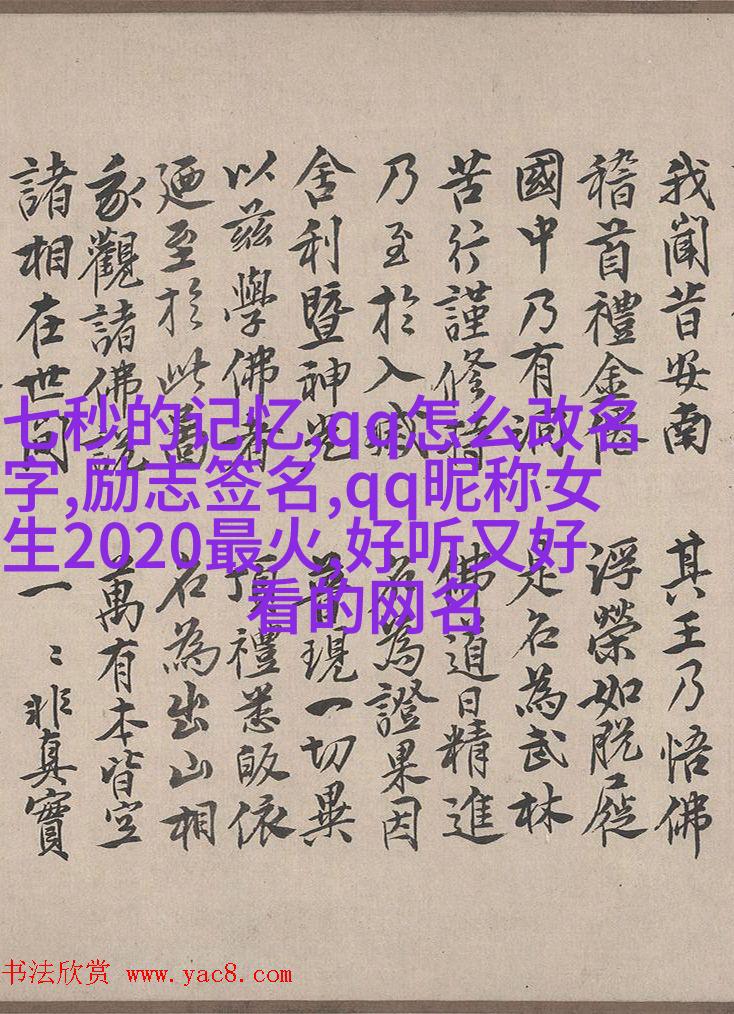 我聞昔安南 其王乃悟佛
稽首禮金僊 浮榮如脫屣
國中乃有 是名為武林
苦行謹修持 佛道日精進
乃至於入滅 為證果因
舍利暨神光 普現一切異
以茲學佛者 頂禮悉皈依
廼至於此 名為出山相
我觀諸佛說 萬有本皆空
諸相在世間 一〻非真實
七秒的记忆,qq怎么改名
字,励志签名,qq昵称女
生2020最火,好听又好
看的网名
书法欣赏 www.yac8.com